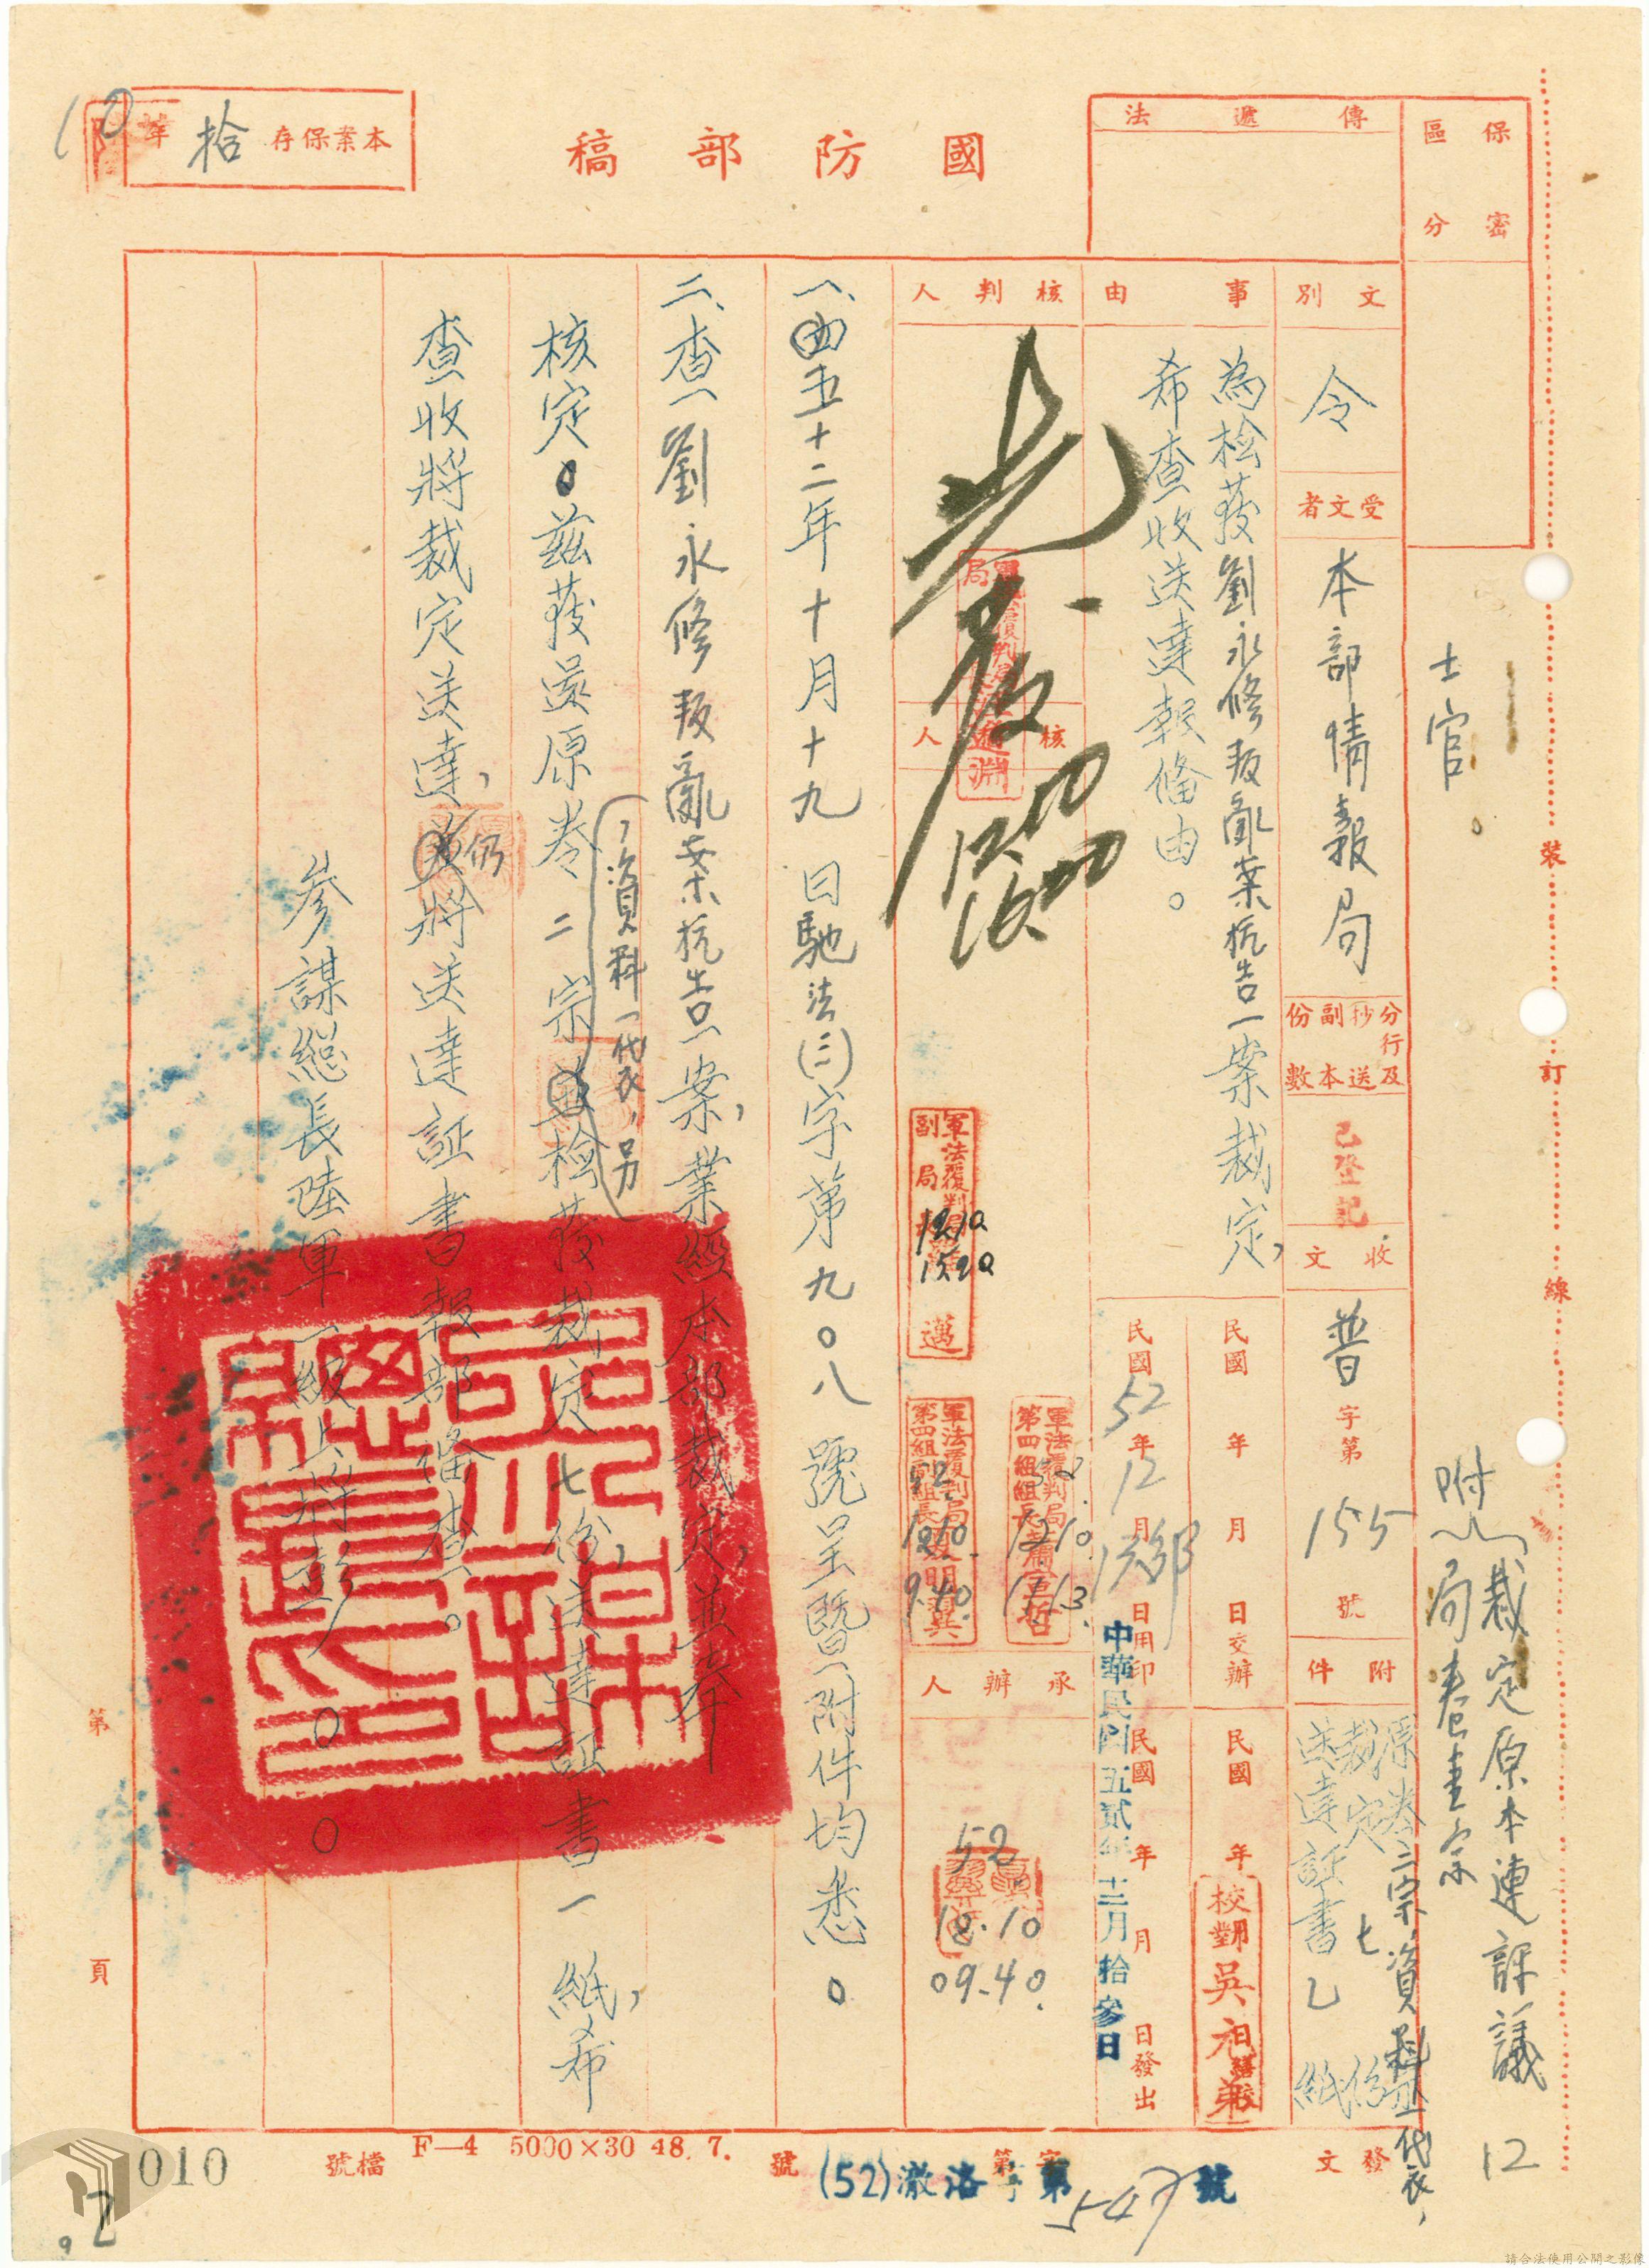 保密
區分
傳遞法
國防部稿
本案保存拾年
10
士官
附
裁定原本連評議
局卷壹宗
12
文別
令
受文者
本部情報局
分行及
抄送
副本
份數
已登記
收文
普字第155號
附件
原卷二宗,資料一代衣,
裁定七份
送達証書乙紙
事由
為檢發劉永修叛亂案抗告一案裁定,
希查收送達報備由。
民國 年 月 日交辦
民國52年12月 日用印
民國 年 月 日
校對吳
民國 年 月 日發出
中華民國五貳年十二月拾參日
核判人
核人
軍法覆判局
副局
邁
12/10
1520
軍法覆判局
第四組組長
12/10
軍法覆判局
第四組副組長
52
12/10
9.40
承辦人
52
12.10
09.40
一、五十二年十月十九日馳法(二)字第九〇八號呈暨附件均悉。
二、查劉永修叛亂案抗告一案,業經本部裁定,並奉
核定。茲發還原卷二宗,資料一代衣,另檢發裁定七份,送達証書一紙,希
查收將裁定送達,仍將送達証書報部備查。
參謀總長陸軍一級上將彭○○
裝
訂
線
第 頁
發文
(52)澈洛字第547號
字第 號
F—4 5000×30 48. 7.
檔號
010
2
請合法使用公開之影像